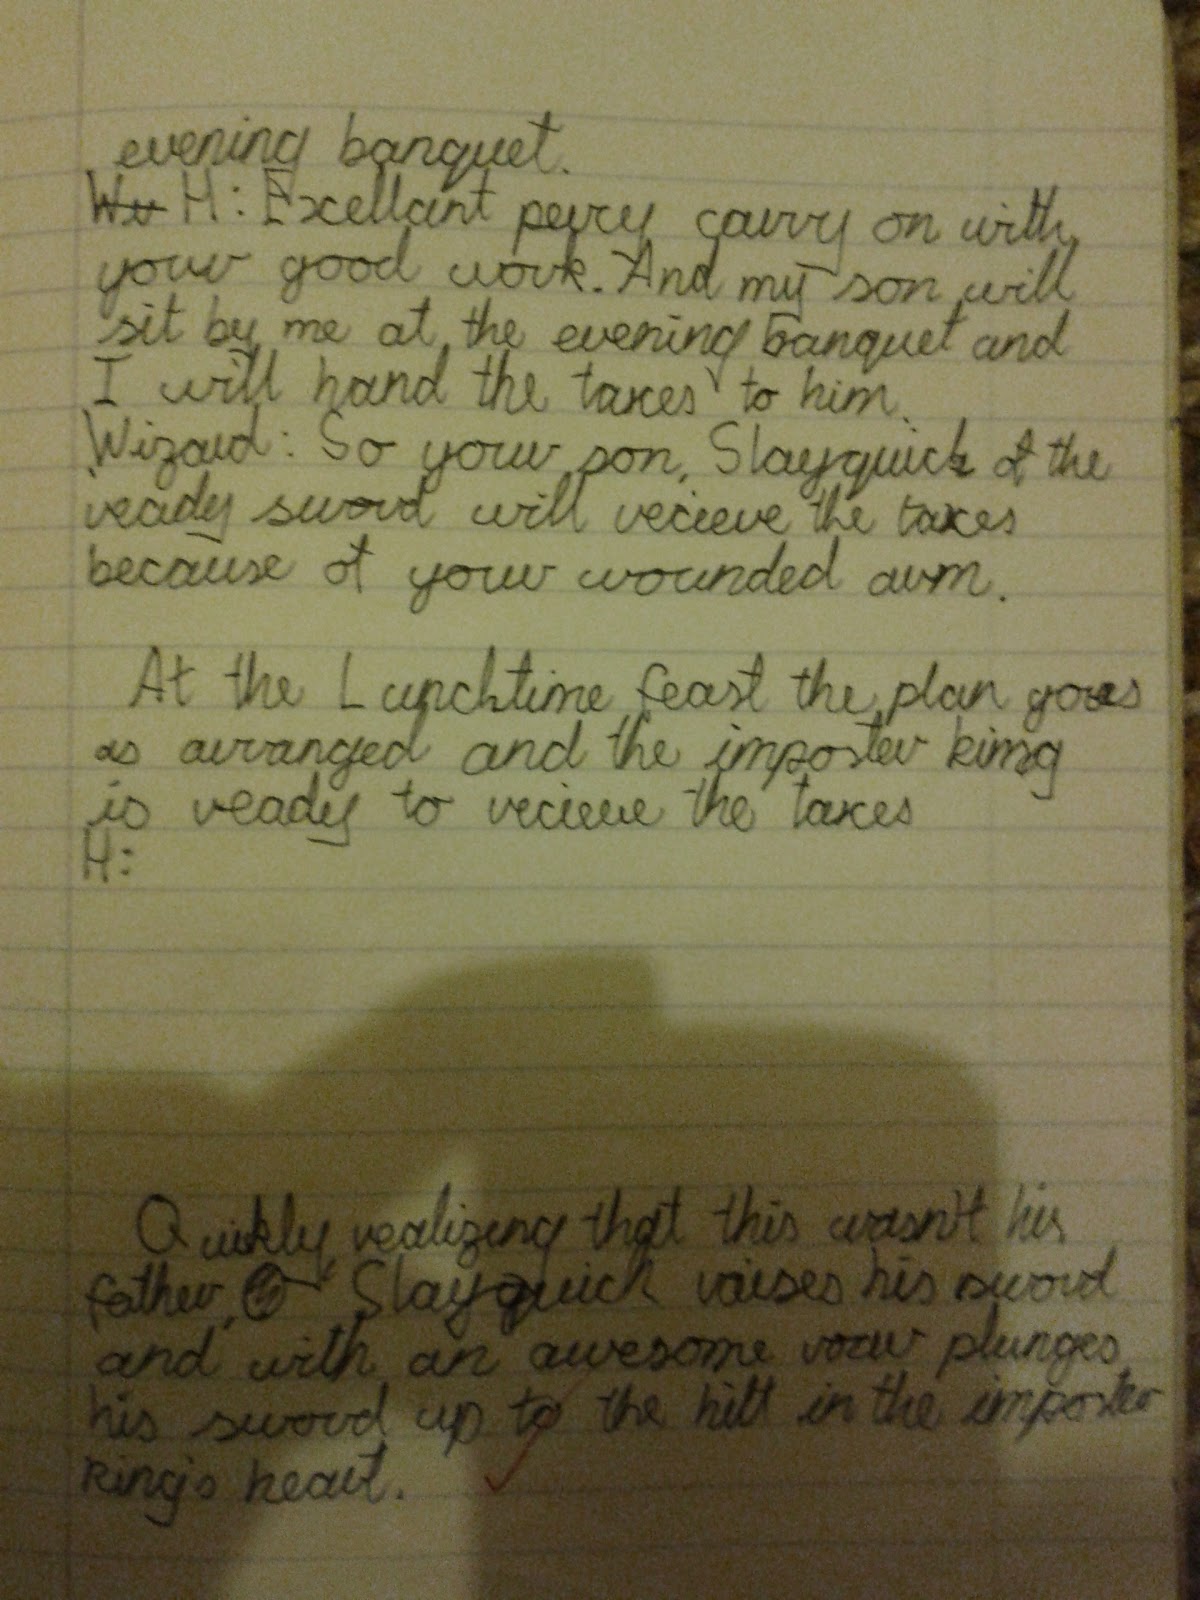 evening banquet.
Wu H: Excellant perry carry on with
your good work. And my son will
sit by me at the evening banquet and
I will hand the taxes to him.
Wizard: So your son, Slayquick of the
ready sword will recieve the taxes
because of your wounded arm.
At the Lunchtime feast the plan goes
as arranged and the imposter king
is ready to recieve the taxes
H:
Quikly realizing that this wasn't his
father, Slayquick raises his sword
and with an awesome roar plunges
his sword up to the hilt in the imposter
king's heart.